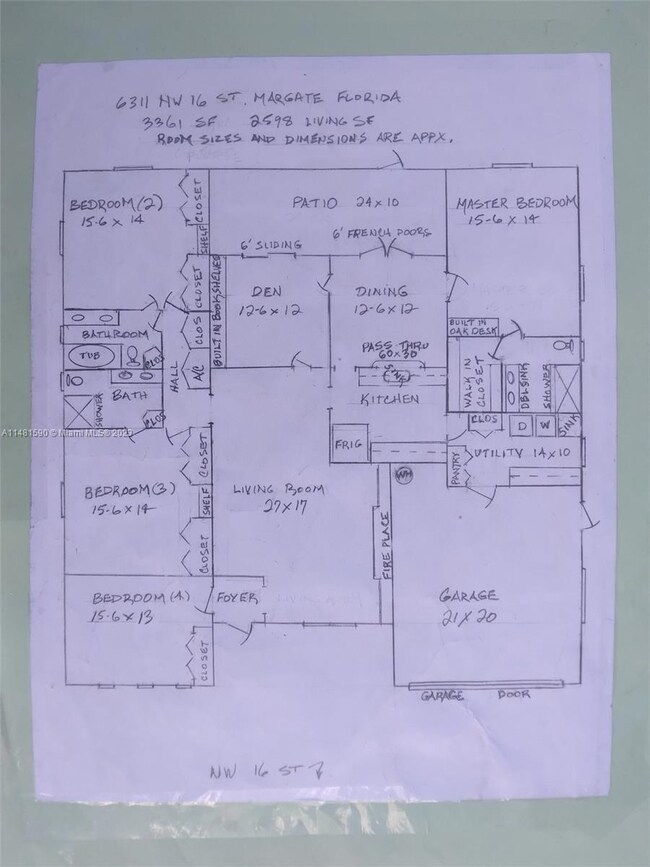 6311 NW 16 ST. MARGATE FLORIDA
3361 SF 2598 LIVING SF
ROOM SIZES AND DIMENSIONS ARE APPX.
BEDROOM (2)
15-6 x 14
CLOSET
SHELF
CLOSET
PATIO 24x10
6' SLIDING
6' FRENCH DOORS
MASTER BEDROOM
15-6 x 14
DEN
12-6 x 12
DINING
12-6 x 12
BUILT IN BOOKSHELVES
BUILT IN
OAK DESK
BATHROOM
TUB
CLOS
CLOS
A/C
HALL
PASS THRU
60x30
KITCHEN
WALK IN
CLOSET
DBL SINK
SHOWER
BATH
SHOWER
CLOS
CLOS
D
W
SINK
FRIG
PANTRY
UTILITY 14x10
WH
CLOSET
BEDROOM (3)
15-6 x 14
SHELF
CLOSET
LIVING ROOM
27x17
FIRE PLACE
BEDROOM (4)
15-6 x 13
FOYER
CLOSET
GARAGE
21 x 20
GARAGE DOOR
NW 16 ST
A11481590 © Miami MLS ® 2023